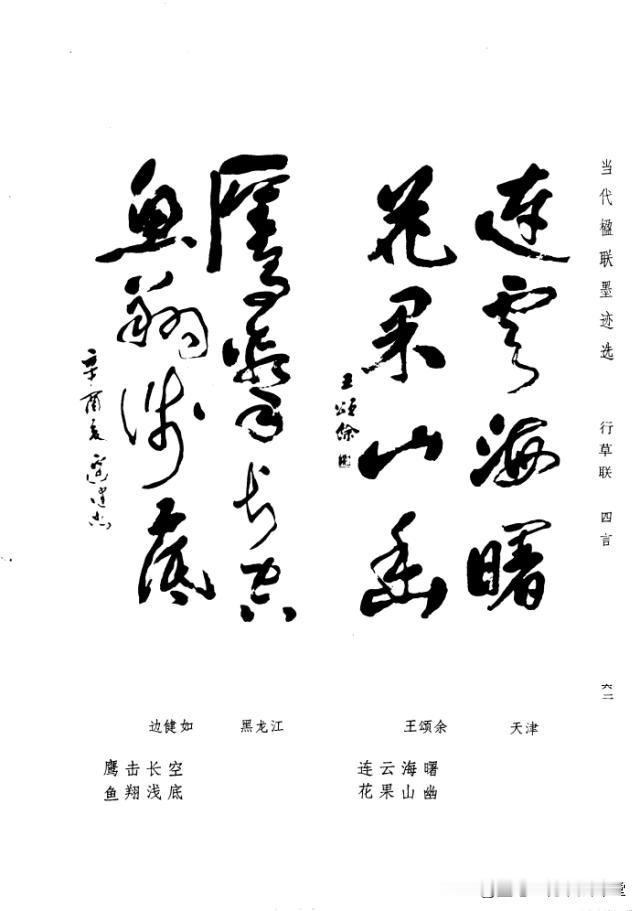 当代楹联墨迹选 行草联 四言 六二
連雲海曙
花果山幽
王頌餘
鷹擊長空
魚翔淺底
辛酉夏
天津 王颂余
连云海曙
花果山幽
黑龙江 边健如
鹰击长空
鱼翔浅底